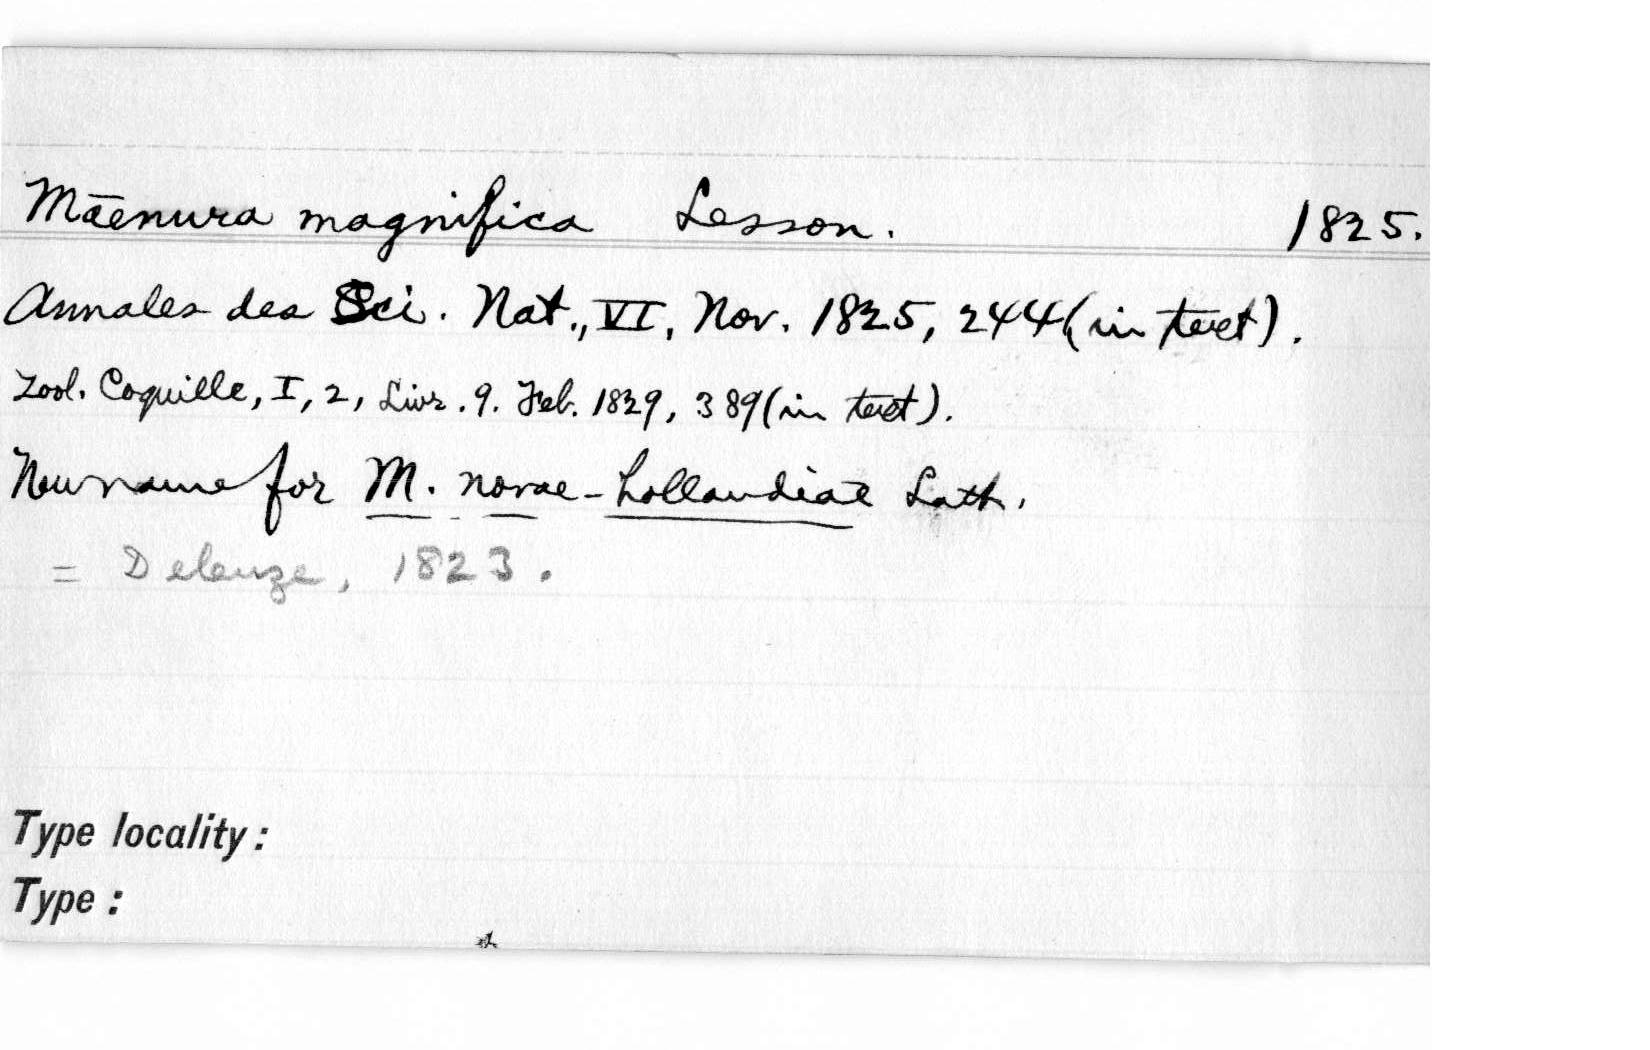 Maenura magnifica Lesson. 1825.
Annales des Sci. Nat., VI, Nov. 1825, 244 (in text).
Zool. Coquille, I, 2, Livr. 9. Feb. 1829, 389 (in text).
New name for M. novae-hollandiae Lath.
= Deleuze, 1823.
Type locality:
Type: